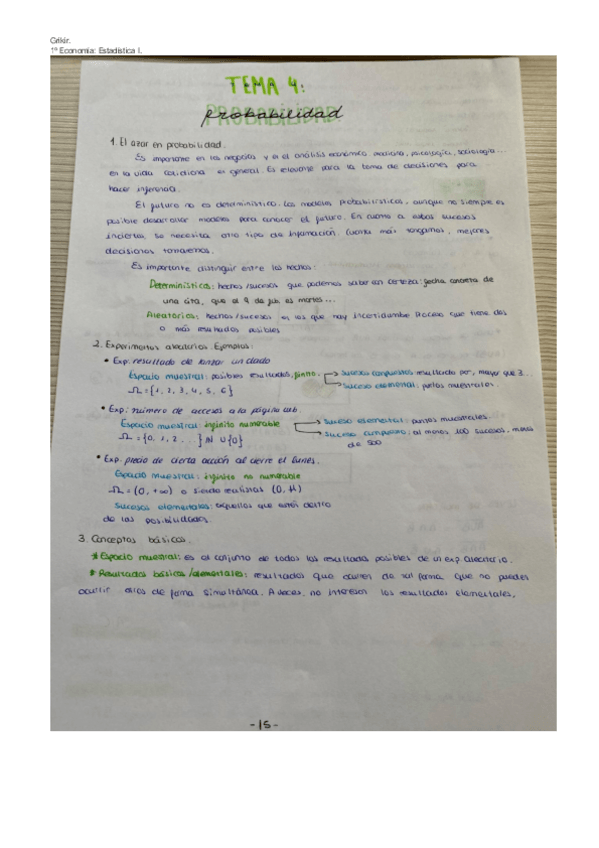 Grikir.
1º Economía: Estadística I.
TEMA 4:
PROBABILIDAD
probabilidad
1. El azar en probabilidad.
Es importante en los negocios y en el análisis económico, medicina, psicología, sociología...
en la vida cotidiana en general. Es relevante para la toma de decisiones para
hacer inferencia.
El futuro no es determinístico. Los modelos probabilísticos, aunque no siempre es
posible desarrollar modelos para conocer el futuro. En cuanto a estos sucesos
inciertos, se necesita otro tipo de información. Cuanta más tengamos, mejores
decisiones tomaremos.
Es importante distinguir entre los hechos:
Determinísticos: hechos/sucesos que podemos saber en certeza: fecha concreta de
una cita, que el 9 de jun. es martes...
Aleatorios: hechos/sucesos en los que hay incertidumbre. Proceso que tiene dos
o más resultados posibles
2. Experimentos aleatorios. Ejemplos:
• Exp: resultado de lanzar un dado
Espacio muestral: posibles resultados, finito. → suceso compuestos: resultado par, mayor que 3...
→ suceso elemental: puntos muestrales.
Ω = {1, 2, 3, 4, 5, 6}
• Exp: número de accesos a la página web.
Espacio muestral: infinito numerable → suceso elemental: puntos muestrales.
Ω = {0, 1, 2, ...} ℕ ∪ {0} → suceso compuesto: al menos 100 sucesos, menos
de 500
• Exp. precio de cierta acción al cierre el lunes.
Espacio muestral: infinito no numerable
Ω = (0, +∞) o siendo realistas (0, M)
Sucesos elementales: aquellos que estén dentro
de las posibilidades.
3. Conceptos básicos.
* Espacio muestral: es el conjunto de todos los resultados posibles de un exp. aleatorio.
* Resultados básicos/elementales: resultados que ocurren de tal forma que no pueden
ocurrir otros de forma simultánea. A veces, no interesan los resultados elementales,
-15-